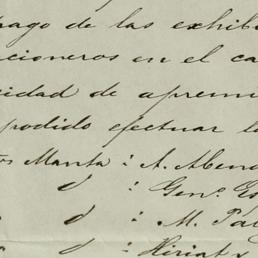 pago de las exhibi
cioneros en el ca
cidad de apremi
podido efectuar l
os Manta : A. Abend
d : Gen.o Es
d : M. Pa
d : Hiriat y